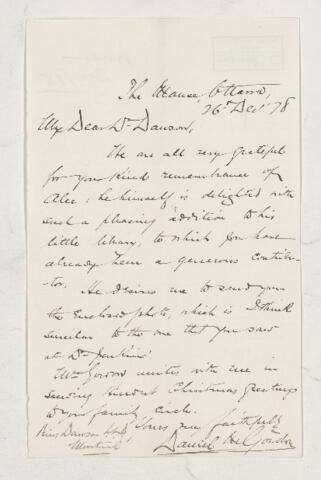 The Manse, Ottawa,
26th Decr 78
My Dear Dr Dawson,
We are all very grateful
for your kind remembrance of
Alec: he himself is delighted with
such a pleasing addition to his
little library, to which you have
already been a generous contribu-
-tor. He desires me to send you
the enclosed photo, which is I think
similar to the one that you saw
at Dr Jenkins'.
Mrs Gordon unites with me in
sending kindest Christmas greetings
to your family circle.
Yours very faithfully
Daniel M. Gordon
Prin. Dawson LL.D.
Montreal